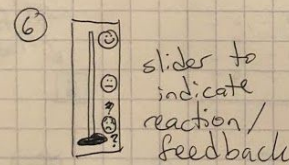 6
slider to
indicate
reaction/
feedback
??